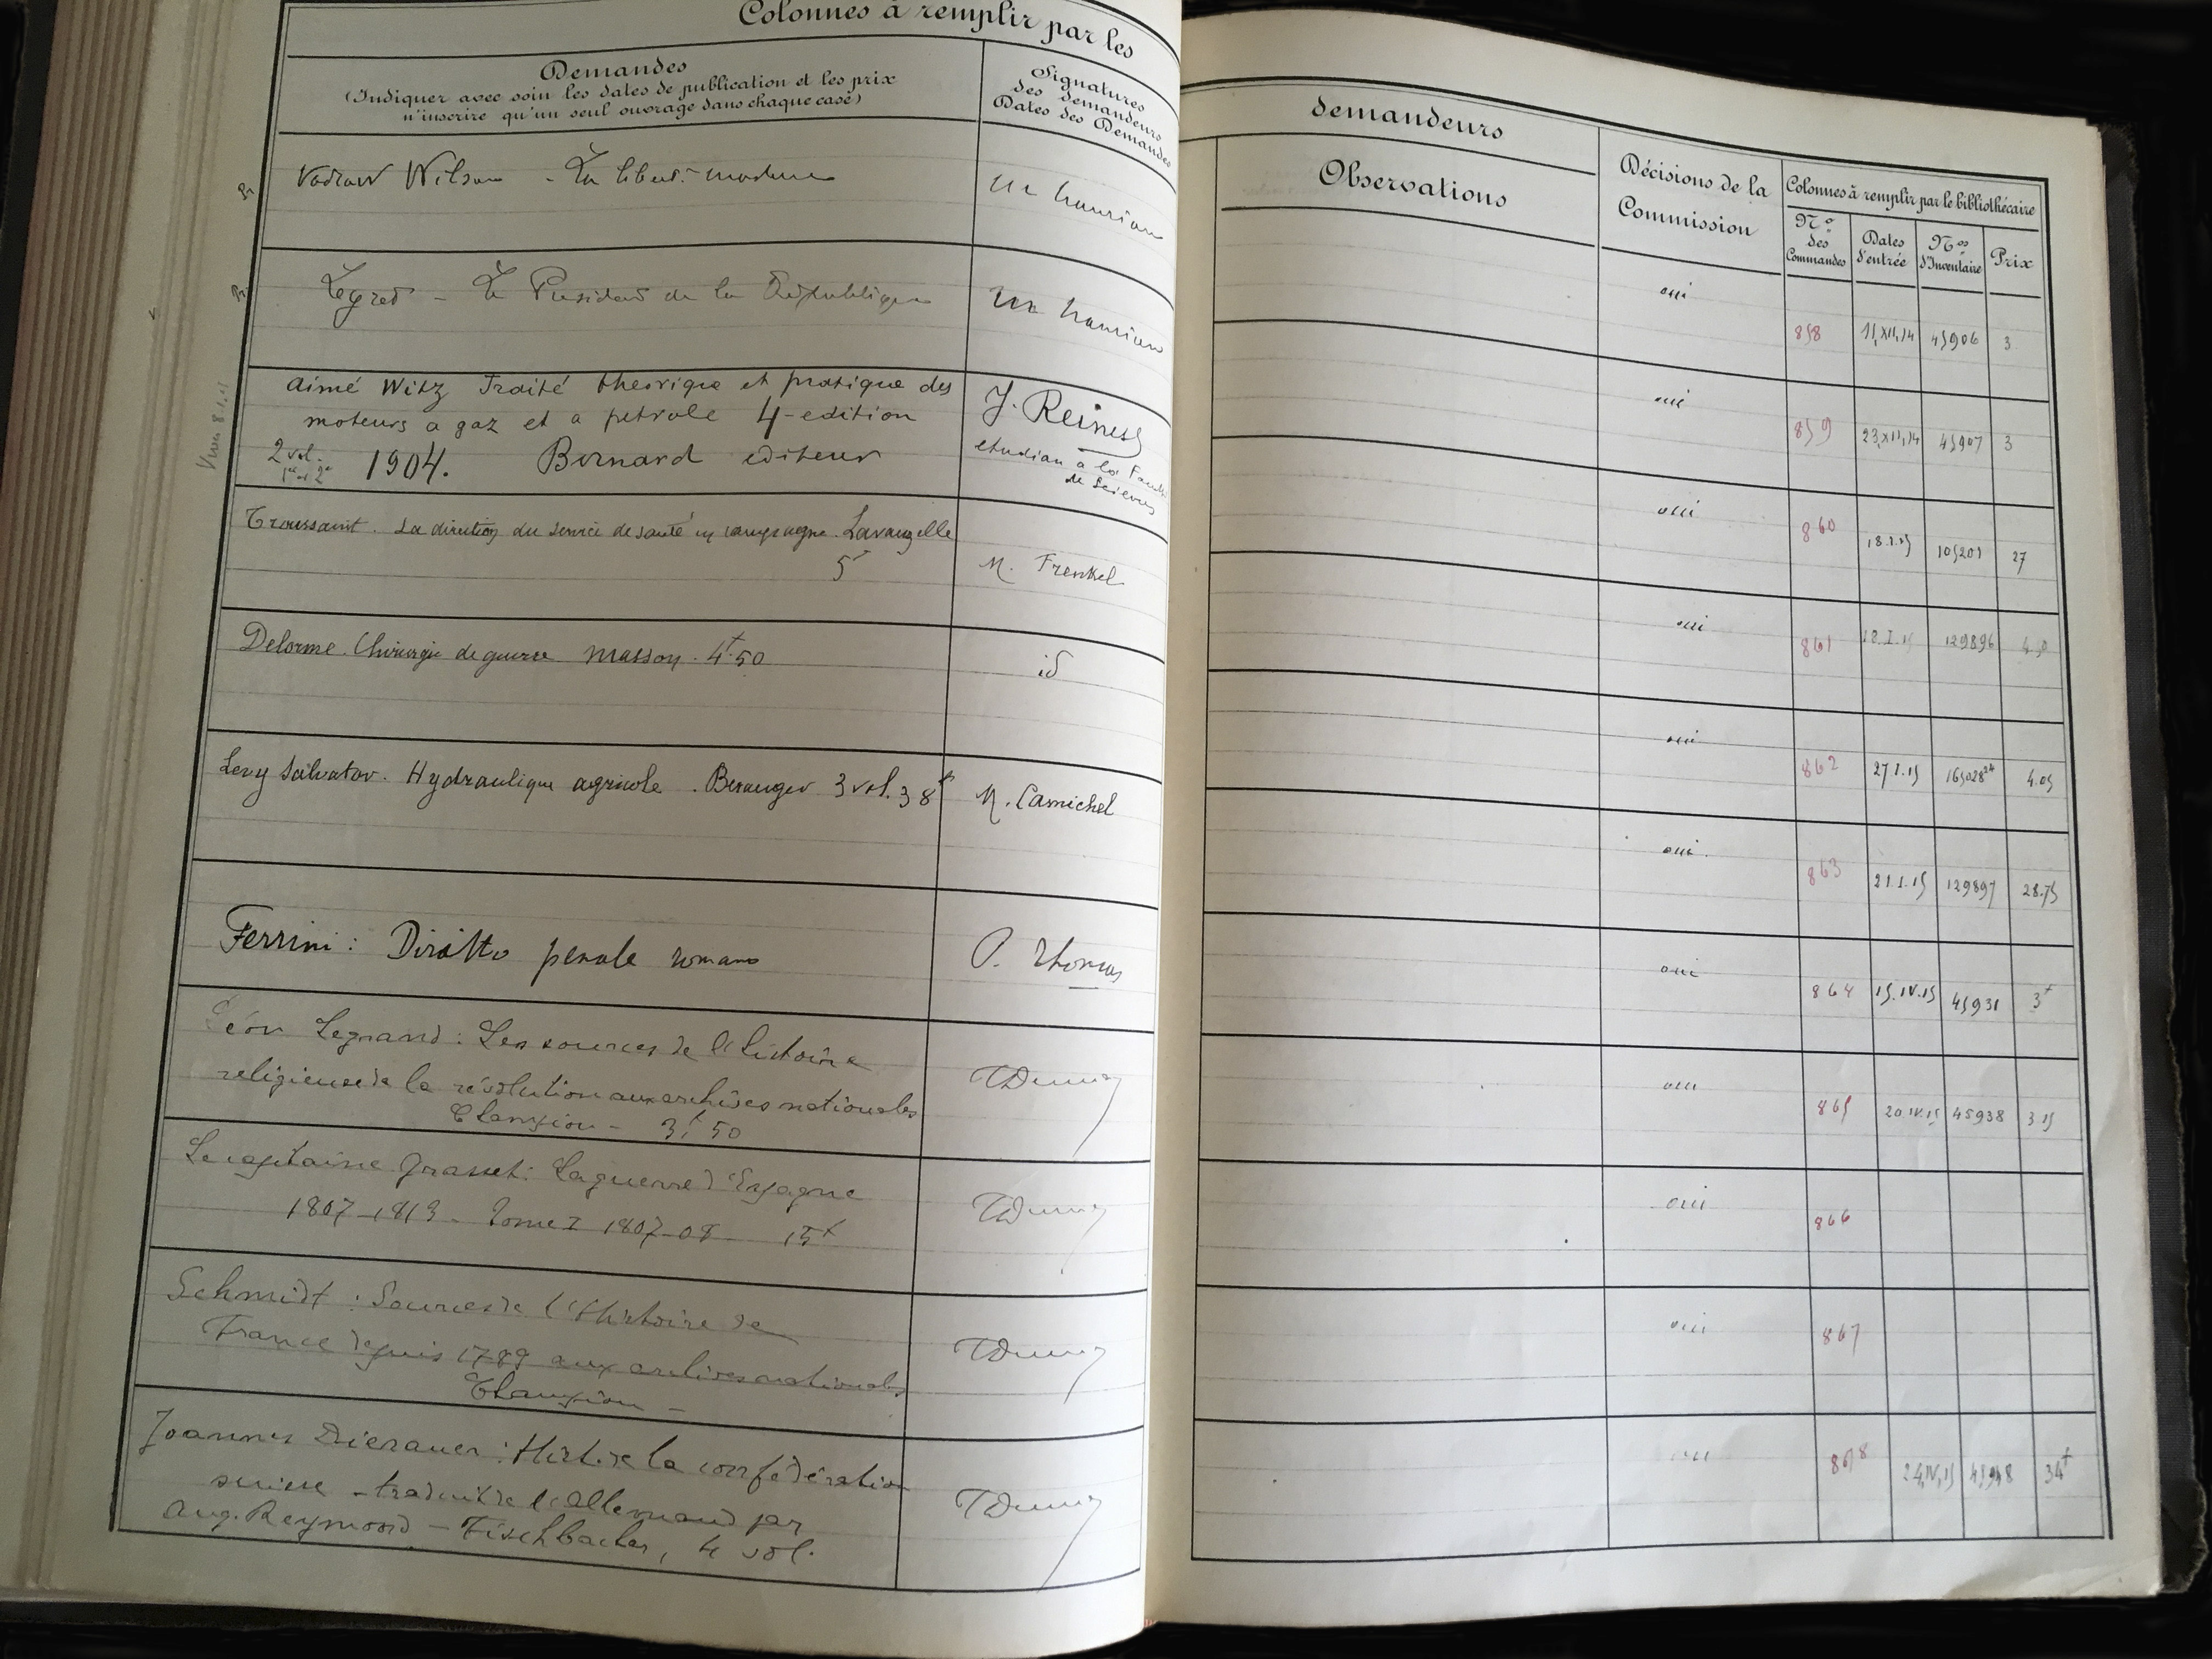 Colonnes à remplir par les
Demandes
(Indiquer avec soin les dates de publication et les prix
n'inscrire qu'un seul ouvrage dans chaque case)
Signatures
des demandeurs
Dates des Demandes
Wilson - La liberté moderne
M Hauriou
- Le Président de la République
M Hauriou
Aimé Witz Traité theorique et pratique des
moteurs a gaz et a petrole 4-edition
2 vol. 1904. Bernard editeur
1er et 2e
J. Reines
etudian a la Faculté
de Sciences
Troussaint. La direction du service de santé en campagne. Lavauzelle
5f
M. Frenkel
Delorme. Chirurgie de guerre Masson. 4f.50
id
Levy Salvator. Hydraulique agricole. Beranger 3 vol. 38f
M. Camichel
Ferrini: Diritto penale romano
P. Thomas
Léon Legrand: Les sources de l'histoire
religieuse de la révolution aux archives nationales
Champion - 3f 50
Le capitaine Grasset: La guerre d'Espagne
1807-1813 - Tome I 1807-08 15f
Schmidt: Sources de l'Histoire de
France depuis 1789 aux archives nationales
Champion -
Joannes Dierauer: Hist. de la confédération
suisse - traduit de l'allemand par
Aug. Reymond - Fischbacher, 4 vol.
demandeurs
Observations
Décisions de la
Commission
Colonnes à remplir par le bibliothécaire
Nos
des
Commandes
Dates
d'entrée
Nos
d'Inventaire
Prix
oui 858 15.XII.14 45906 3
oui 859 23.XII.14 45907 3
oui 860 18.I.15 105201 27
oui 861 18.I.15 129896 4.50
oui 862 27.I.15 165028 24 4.05
oui 863 21.I.15 129897 28.75
oui 864 15.IV.15 45931 3f
oui 865 20.IV.15 45938 3.15
oui 866
oui 867
oui 868 24.IV.15 45948 34f